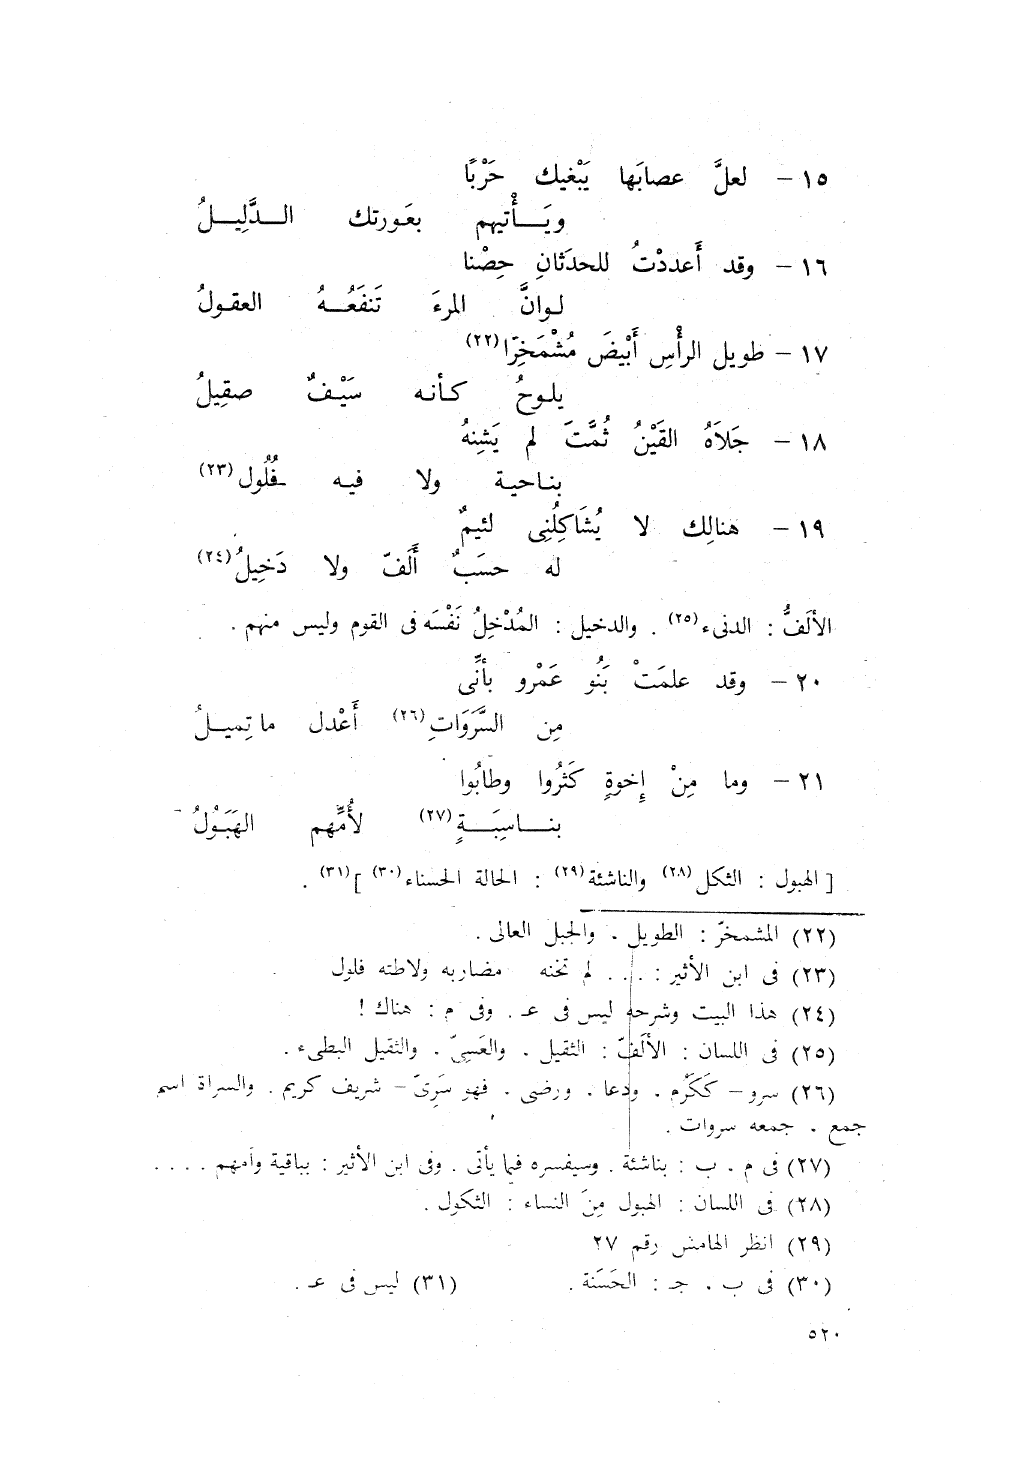 ١٥ – لعلَّ عصابَها يَبْغيك حَرْبًا
ويَـــأْتيهم بعَورتك الــدَّلِيــلُ
١٦ – وقد أَعددْتُ للحدَثانِ حِصْنا
لـوانَّ المرءَ تَنفَعُـــهُ العقـولُ
١٧ – طويل الرأْسِ أَبْيضَ مُشْمَخِرّا(٢٢)
يلـوحُ كـأنـه سَيْـفٌ صقِيلُ
١٨ – جَلاَهُ القَيْنُ ثُمَّتَ لم يَشِنهُ
بنـاحيـة ولا فيـه فُلُول(٢٣)
١٩ – هنالِك لا يُشَاكِلُنِى لئيمٌ
له حسَبٌ أَلَفّ ولا دَخِيلُ(٢٤)
الألَفُّ : الدنىء(٢٥) . والدخيل : المُدْخِلُ نَفْسَه فى القوم وليس منهم .
٢٠ – وقد علمَتْ بَنُو عَمْرو بأنِّى
مِن السَّرَوَاتِ(٢٦) أَعْدل ما تِميـلُ
٢١ – وما مِنْ إِخوةٍ كَثُروا وطابُوا
بنـــاسِبَـــةٍ(٢٧) لأُمِّهم الهَبَوُلُ
[ الهبول : الثكل(٢٨) والناشئة(٢٩) : الحالة الحسناء(٣٠) ](٣١) .
(٢٢) المشمخرّ : الطويل . والجبل العالى .
(٢٣) فى ابن الأثير : . . . لم تخنه مضاربه ولاطته فلول
(٢٤) هذا البيت وشرحه ليس فى عـ . وفى م : هناك !
(٢٥) فى اللسان : الألَفّ : الثقيل . والعَسِىّ . والثقيل البطىء .
(٢٦) سرو – كَكَرُم . ودعا . ورضى . فهو سَرِىّ – شريف كريم . والسراة اسم
جمع . جمعه سروات .
(٢٧) فى م . ب : بناشئة . وسيفسره فيما يأتى . وفى ابن الأثير : بباقية وأمهم . . . .
(٢٨) فى اللسان : الهبول مِنَ النساء : الثكول .
(٢٩) انظر الهامش رقم ٢٧
(٣٠) فى ب . جـ : الحَسَنة . (٣١) ليس فى عـ .
٥٢٠